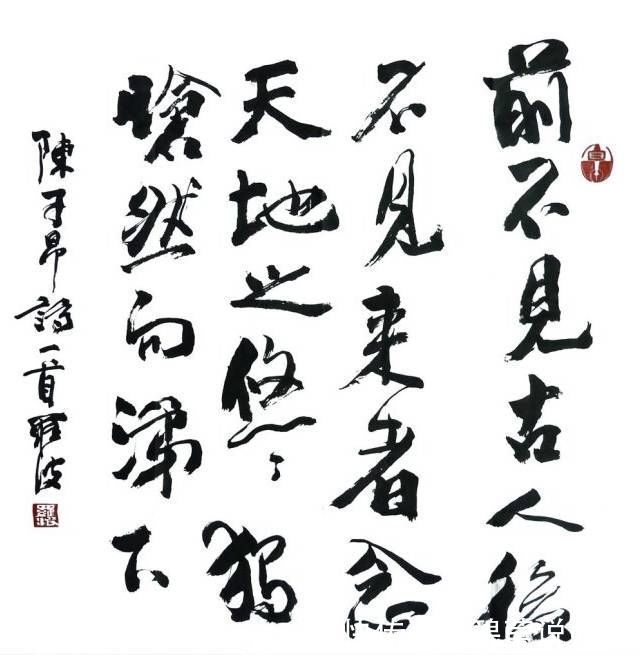 前不見古人後
不見来者念
天地之悠々獨
愴然而涕下
陳子昂詩一首羅波